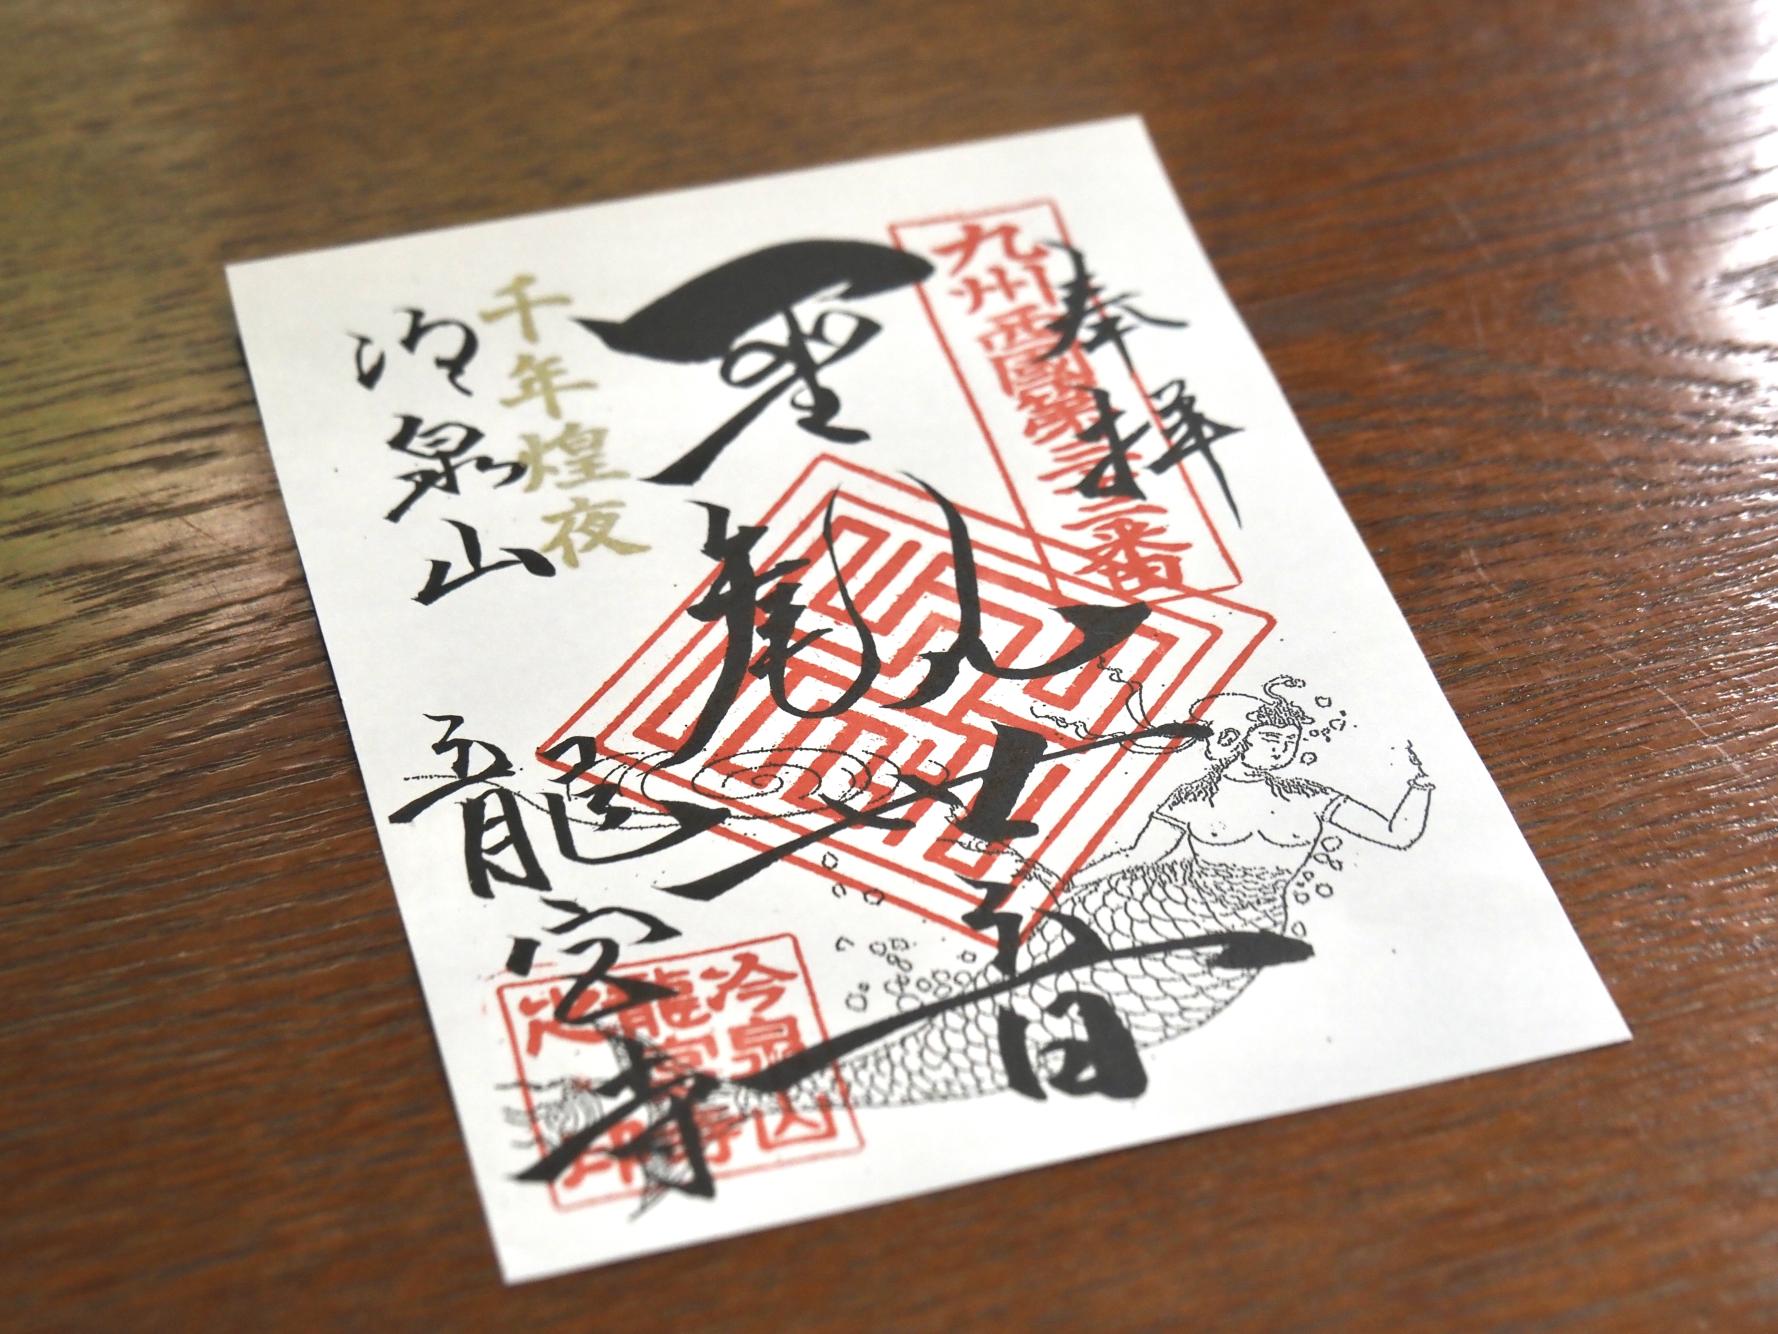 奉拝
九州西國第三十二番
聖観世音
千年煌夜
冷泉山
龍宮寺
冷泉山
龍宮寺
之印